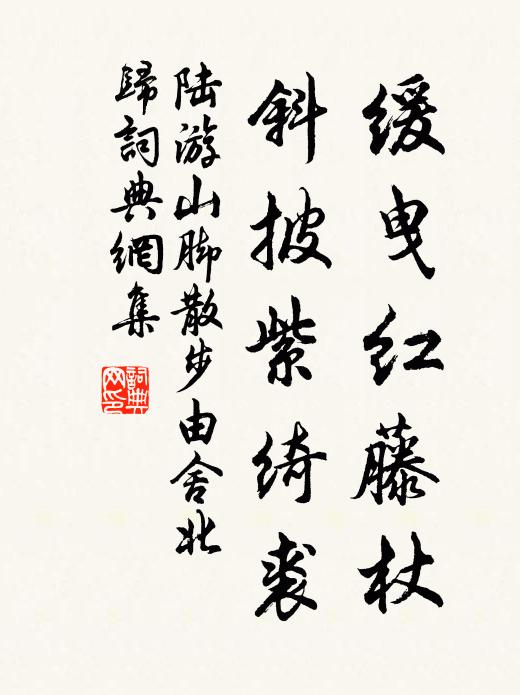 缓曳红藤杖
斜披紫绮裘
陆游山脚散步由舍北
歸詞典網集
詞典网印